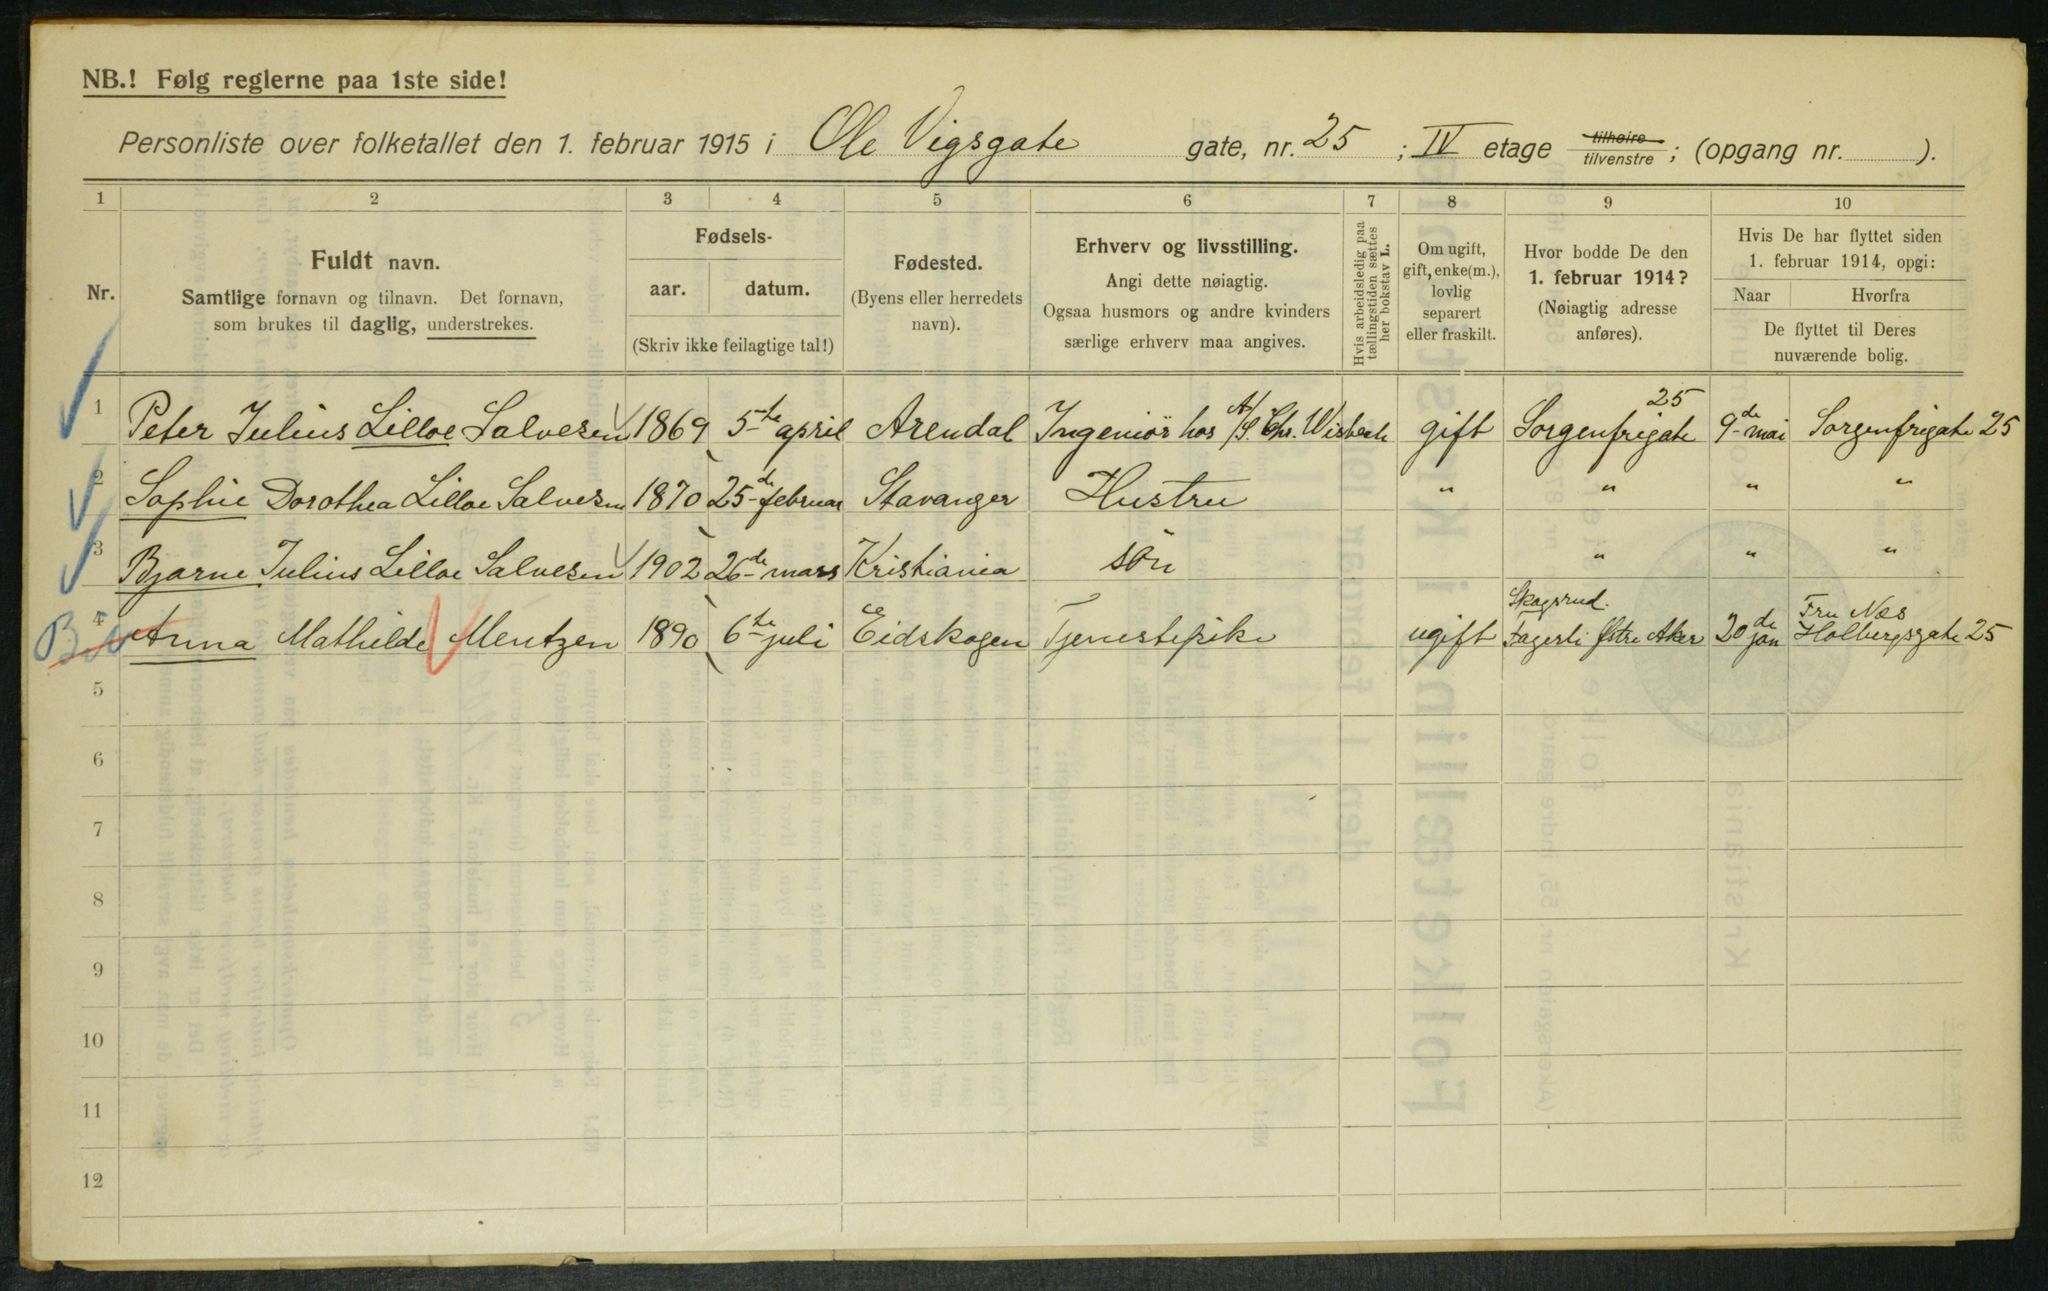 NB.! Følg reglerne paa 1ste side!
Personliste over folketallet den 1. februar 1915 i Ole Vigsgate gate, nr. 25 ; IV etage tilhøire tilvenstre ; (opgang nr. ).
1 2 3 4 5 6 7 8 9 10
Nr.
Fuldt navn.
Samtlige fornavn og tilnavn. Det fornavn, som brukes til daglig, understrekes.
Fødsels-
aar. datum.
(Skriv ikke feilagtige tal!)
Fødested.
(Byens eller herredets navn).
Erhverv og livsstilling.
Angi dette nøiagtig.
Ogsaa husmors og andre kvinders særlige erhverv maa angives.
Hvis arbeidsledig paa tællingstiden sættes her bokstav L.
Om ugift, gift, enke(m.), lovlig separert eller fraskilt.
Hvor bodde De den
1. februar 1914?
(Nøiagtig adresse anføres).
Hvis De har flyttet siden
1. februar 1914, opgi:
Naar Hvorfra
De flyttet til Deres nuværende bolig.
1 Peter Julius Lilloe Salvesen 1869 5te april Arendal Ingeniör hos A/S. Chr. Wisbech gift Sorgenfrigate 25 9de mai Sorgenfrigate 25
2 Sophie Dorothea Lilloe Salvesen 1870 25de februar Stavanger Hustru " " " "
3 Bjarne Julius Lilloe Salvesen 1902 26de mars Kristiania sön " " "
4 Anna Mathilde Mentzen 1890 6te juli Eidskogen Tjenestepike ugift Skogsrud. Fagerli Østre Aker 20de jan Fru Næs Holbergsgate 25
5
6
7
8
9
10
11
12